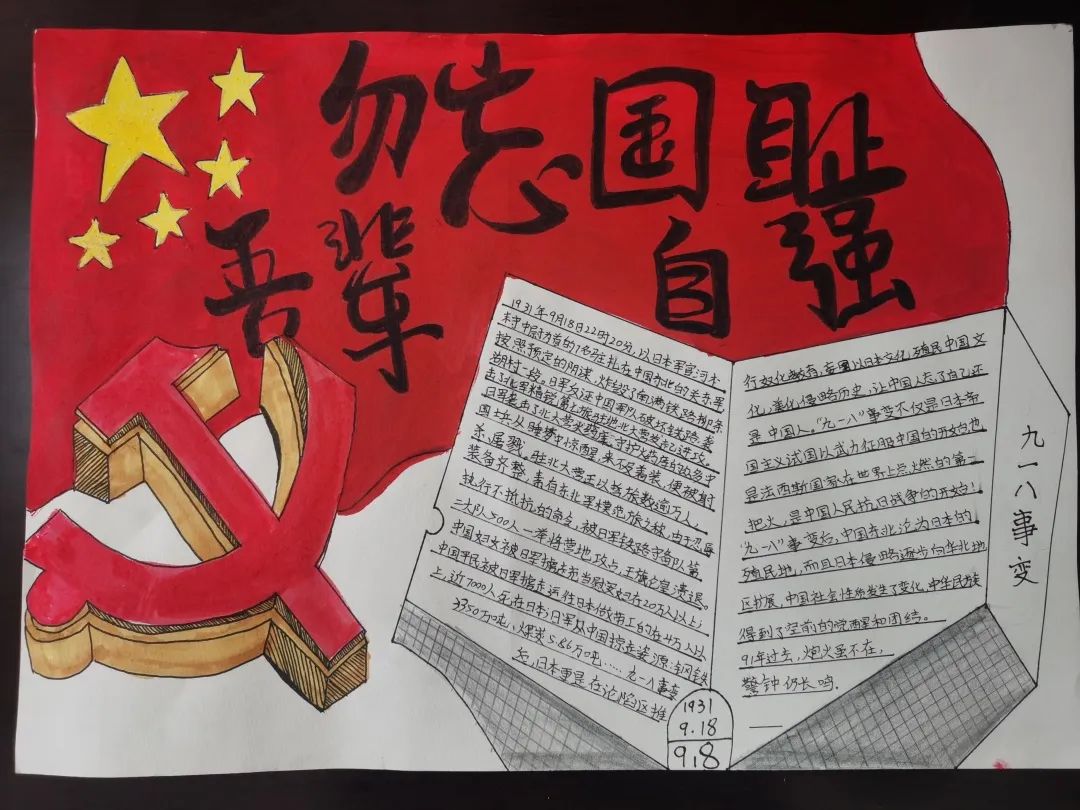 勿忘国耻
吾辈自强
1931年9月18日22时20分，以日本军官河本
末守中尉为首的7名驻扎在中国东北的关东军
按照预定的阴谋，炸毁了南满铁路柳条
湖村一段。日军反诬中国军队破坏铁路，袭
击了北
日军
国士兵从睡梦中惊醒，来不及着装，便被射
杀、屠戮。驻北大营王以哲旅数逾万人，
装备齐整，素有东北军模范旅之称，由于
执行不抵抗的命令，被日军铁路守备队第
三大队500人一举将营地攻占，王旅仓皇溃退。
中国妇女被日军掳去充当慰安妇在20万以上；
中国平民被日军掳去运往日本做苦工的在4万人以
上，近7000人死在日本；日军从中国掠走资源：钢铁
3350万吨、煤炭5.86万吨……九一八事变
后，日本更是在沦陷区推
行奴化教育，妄图以日本文化，殖民中国文
化，美化侵略历史，让中国人忘了自己还
是中国人。“九一八”事变不仅是日本帝
国主义试图以武力征服中国的开始，也
是法西斯国家在世界上点燃的第一
把火，是中国人民抗日战争的开始！
“九一八”事变后，中国东北沦为日本的
殖民地，而且日本侵略逐步向华北地
区扩展，中国社会性质发生了变化，中华民族
得到了空前的觉醒和团结。
91年过去，炮火虽不在，
警钟仍长鸣．
九一八事变
1931
9.18
9.18